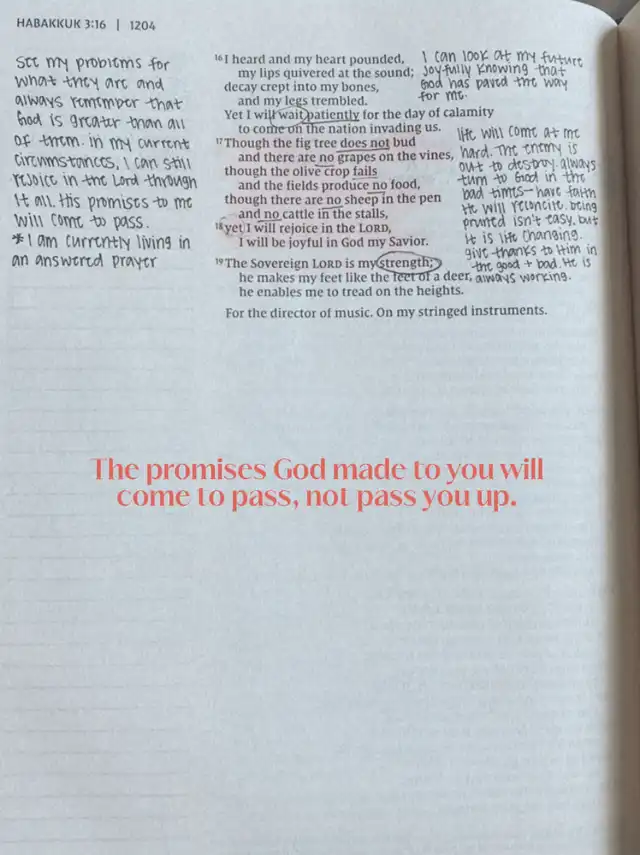 HABAKKUK 3:16 | 1204
see my problems for
what they are and
always remember that
God is greater than all
of them. in my current
circumstances, I can still
rejoice in the Lord through
it all. His promises to me
will come to pass.
*I am currently living in
an answered prayer
16 I heard and my heart pounded,
my lips quivered at the sound;
decay crept into my bones,
and my legs trembled.
Yet I will wait patiently for the day of calamity
to come on the nation invading us.
17 Though the fig tree does not bud
and there are no grapes on the vines,
though the olive crop fails
and the fields produce no food,
though there are no sheep in the pen
and no cattle in the stalls,
18 yet I will rejoice in the LORD,
I will be joyful in God my Savior.
19 The Sovereign LORD is my strength;
he makes my feet like the feet of a deer,
he enables me to tread on the heights.
For the director of music. On my stringed instruments.
I can look at my future
joyfully knowing that
God has paved the way
for me.
life will come at me
hard. the enemy is
out to destroy. always
turn to God in the
bad times - have faith
He will reconcile. being
pruned isn't easy, but
it is life changing.
give thanks to Him in
the good + bad. He is
always working.
The promises God made to you will
come to pass, not pass you up.